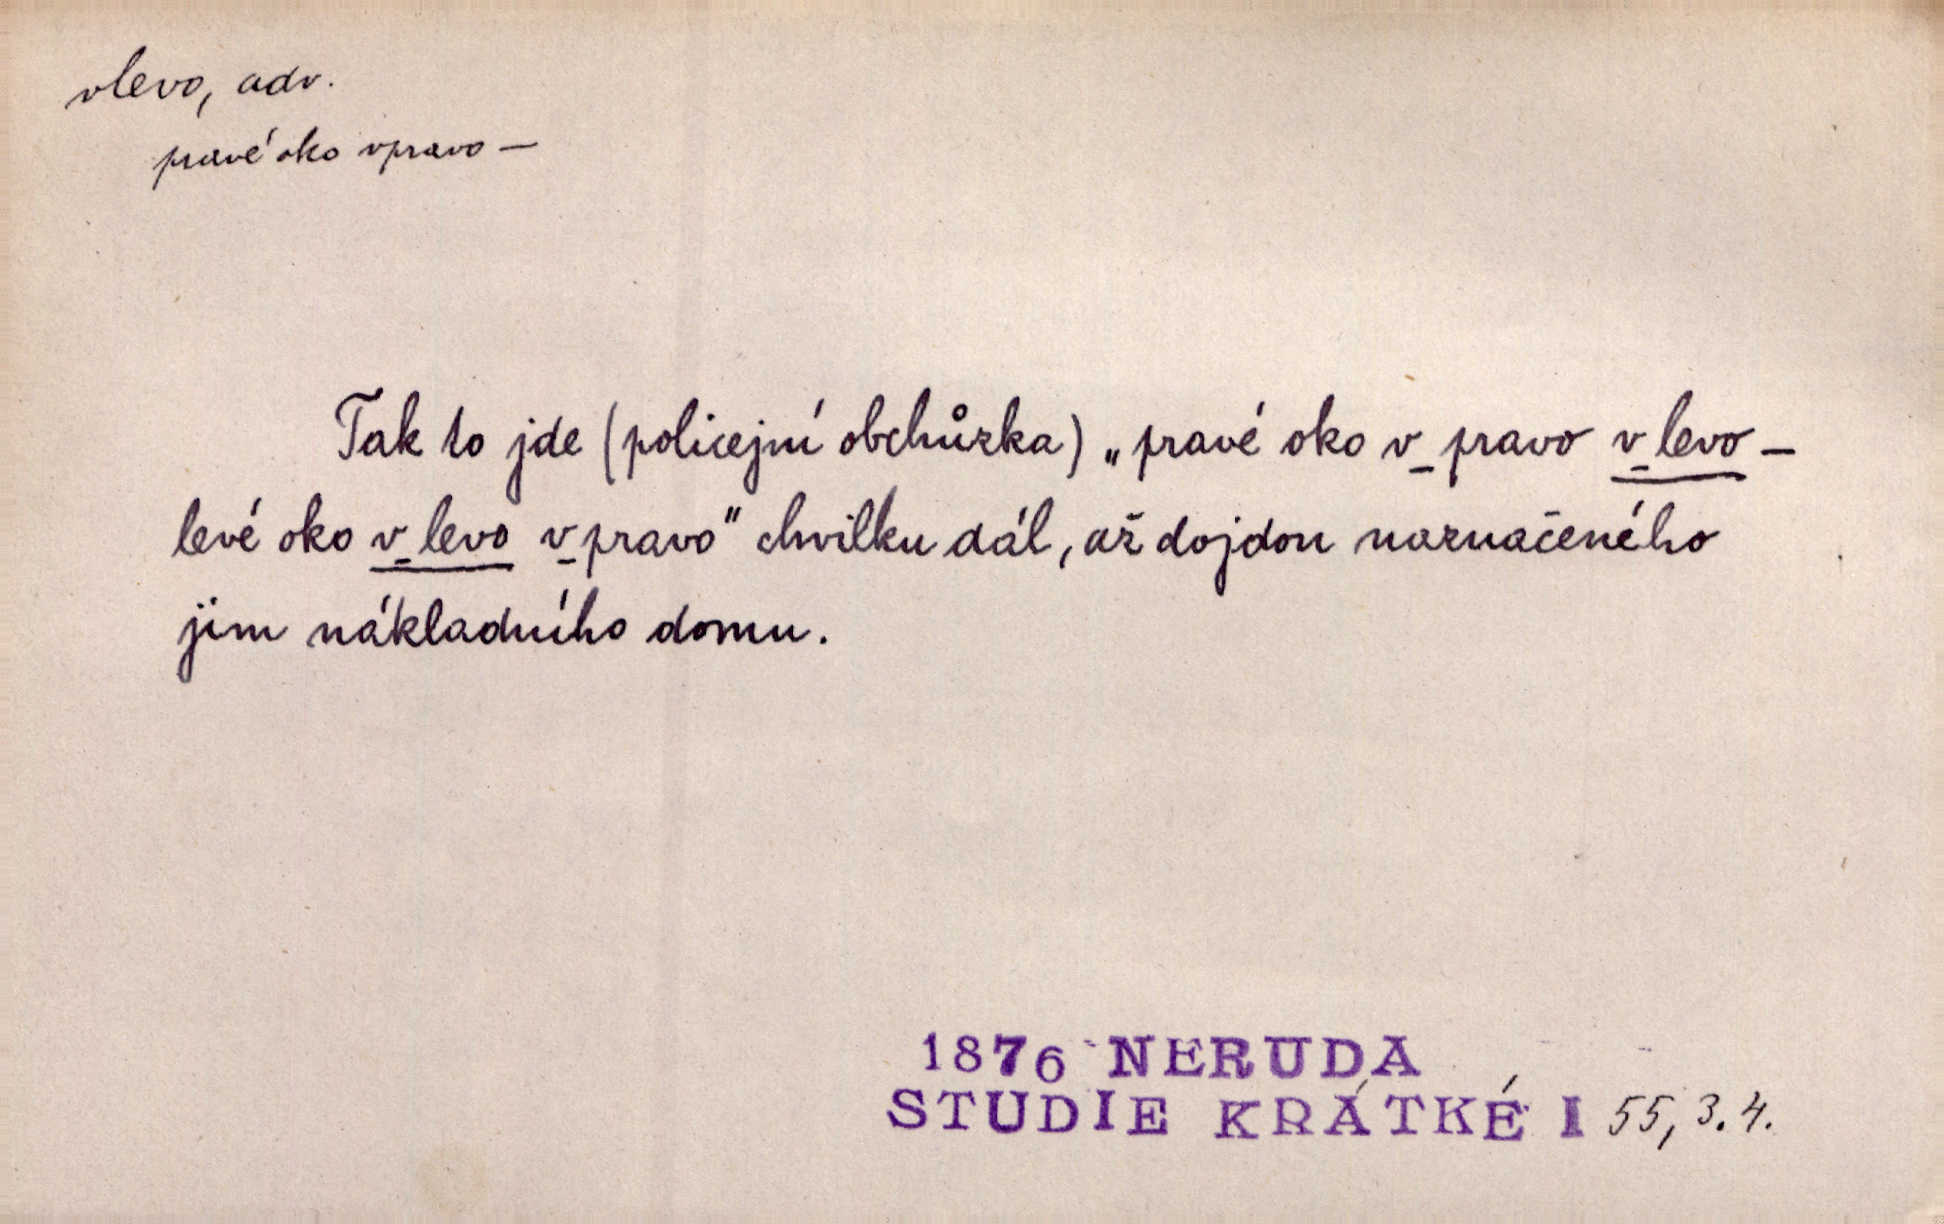 vlevo, adv.
pravé oko vpravo —
Tak to jde (policejní obchůzka) „pravé oko v pravo v levo —
levé oko v levo v pravo" chvilku dál, až dojdou naznačeného
jim nákladního domu.
1876 NERUDA
STUDIE KRÁTKÉ I 55, 3.4.